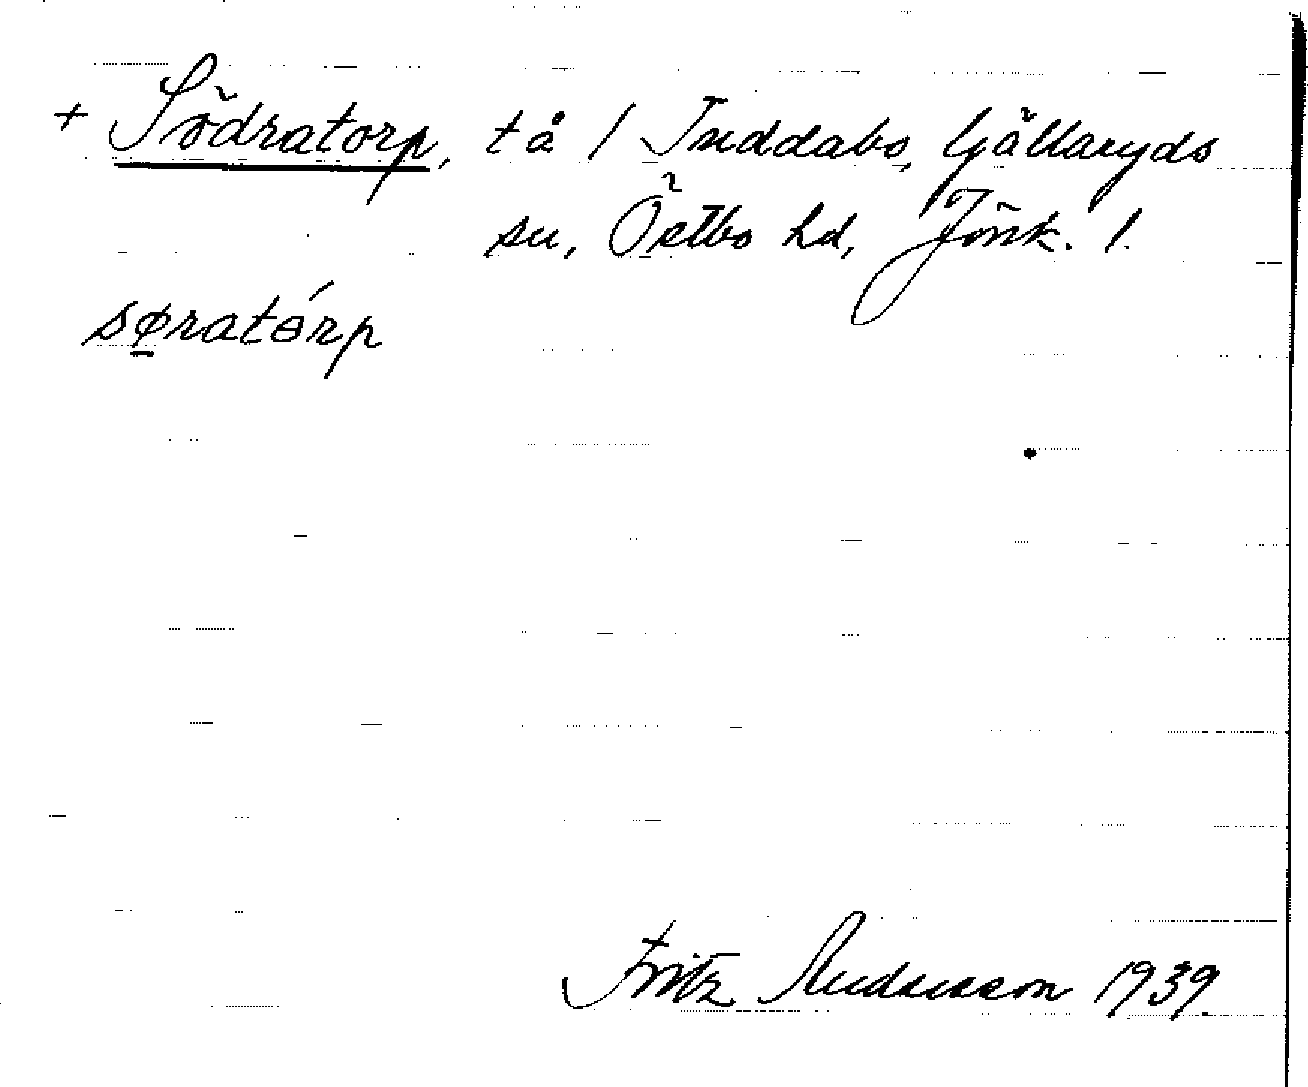 + Södratorp, tå / Truddabo, Gällaryds
sn, Östbo hd, Jönk. l.
søratórp
Fritz Andersson 1939.